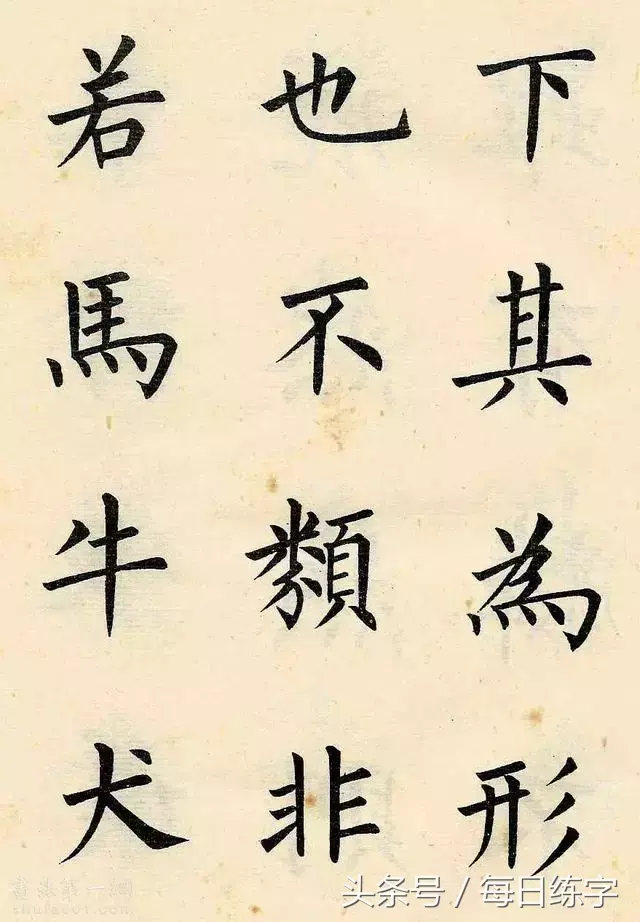 下其為形
也不類非
若馬牛犬
头条号 / 每日练字
shufa001.com